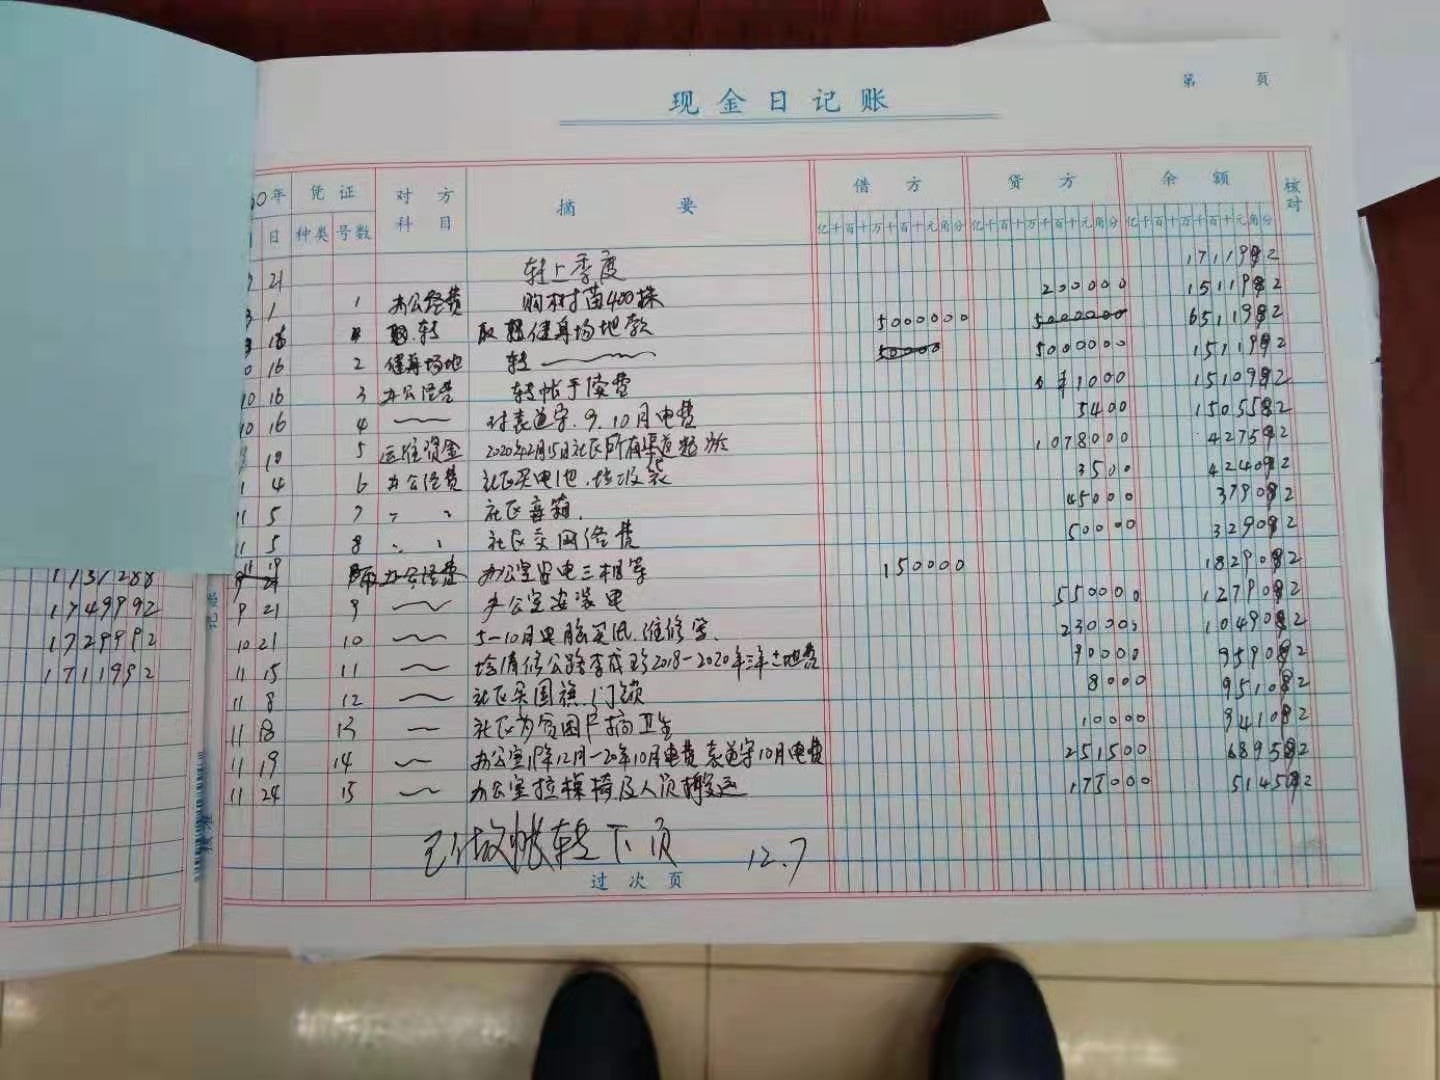 现金日记账
第 页
0年 凭证 对方科目 摘要 借方 贷方 余额 核对
日 种类 号数 亿千百十万千百十元角分 亿千百十万千百十元角分 亿千百十万千百十元角分
21 转上季度 1711992
1 1 办公经费 购材苗400株 200000 1511982
16 转 取 健身场地款 5000000 5000000 6511982
16 2 健身场地 转 50000 5000000 1511982
10 16 3 办公经费 转帐手续费 1000 1510982
10 16 4 9.10月电费 5400 1505582
10 5 运维资金 2020年2月15日社区所有渠道 1078000 427582
4 6 办公经费 社区买电池.垃圾袋 3500 424082
11 5 7 〃 〃 社区 箱. 45000 379082
11 5 8 〃 〃 社区交网络费 50000 329082
11 19 办公经费 办公室 电三相等 150000 1829082
9 21 9 办公室安装电 550000 1279082
10 21 10 5-10月电脑 维修 230000 1049082
11 15 11 修公路李 2018-2020年三年土地费 90000 959082
11 8 12 社区买国旗.门锁 8000 951082
11 18 13 社区为贫困户搞卫生 10000 941082
11 19 14 办公室19年12月-20年10月电费 10月电费 251500 689582
11 24 15 办公室拉桌椅及人员搬运 175000 514582
已做帐转下页 12.7
过次页
1731288
1749992
1729992
1711992